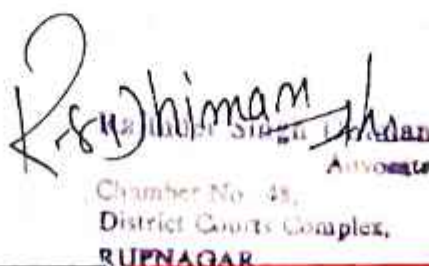 R.S. Dhiman
Singh
Advocate
Chamber No. 48,
District Courts Complex,
RUPNAGAR